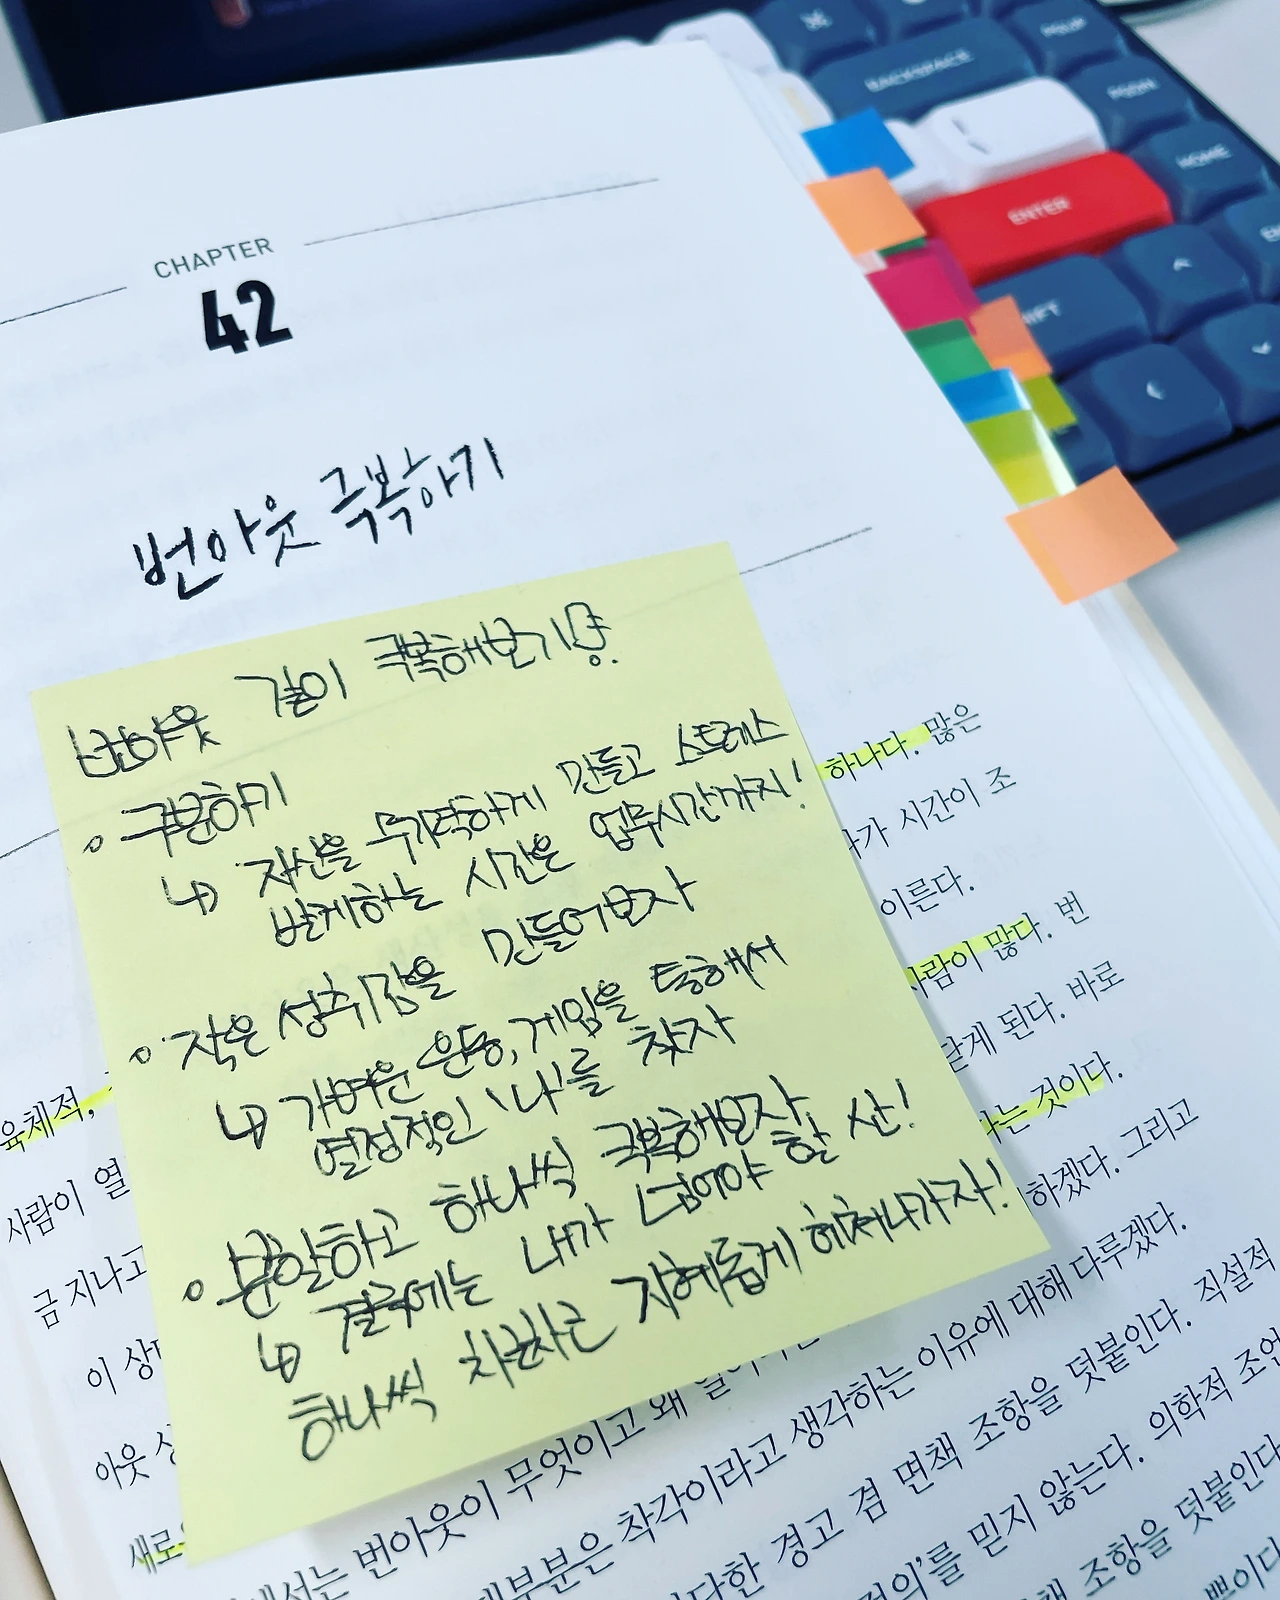 BACKSPACE
PGUP
PGDN
HOME
ENTER
CHAPTER
42
번아웃 극복하기
번아웃 같이 극복해보기용.
구분하기
↳ 자신을 무기력하게 만들고 스트레스
받게하는 시간은 업무시간까지!
작은 성취감을 만들어보자
↳ 가벼운 운동, 게임을 통해서
열정적인 '나'를 찾자
분할하고 하나씩 극복해보자
↳ 결국에는 내가 넘어야 할 산!
하나씩 차근차근 지혜롭게 헤쳐나가자!
하나다. 많은
가 시간이 조
이른다.
사람이 많다. 번
닫게 된다. 바로
육체적, 는 것이다.
사람이 열 하겠다. 그리고
금 지나고 이유에 대해 다루겠다.
이 상 생각하는 덧붙인다. 직설적
아웃 번아웃이 무엇이고 왜
새로 부분은 착각이라고 생각하는 이유에 대해 다루겠다.
서는 번아웃이 무엇이고 왜
다한 경고 겸 면책 조항을 덧붙인다. 직설적
정의'를 믿지 않는다. 의학적 조언
책 조항을 덧붙인다
뿐이다